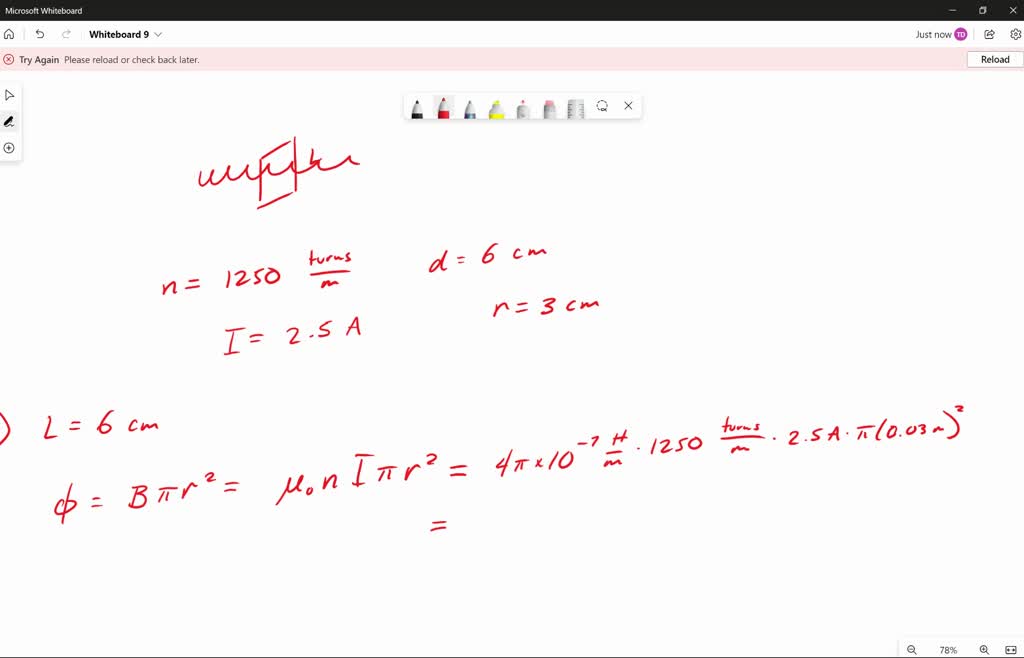 Microsoft Whiteboard
Whiteboard 9
Just now TD
Try Again Please reload or check back later.
Reload
n = 1250 turns/m
d = 6 cm
I = 2.5 A
r = 3 cm
) L = 6 cm
ϕ = Bπr² = μ₀nIπr² = 4π×10⁻⁷ H/m · 1250 turns/m · 2.5A · π(0.03m)²
=
78%